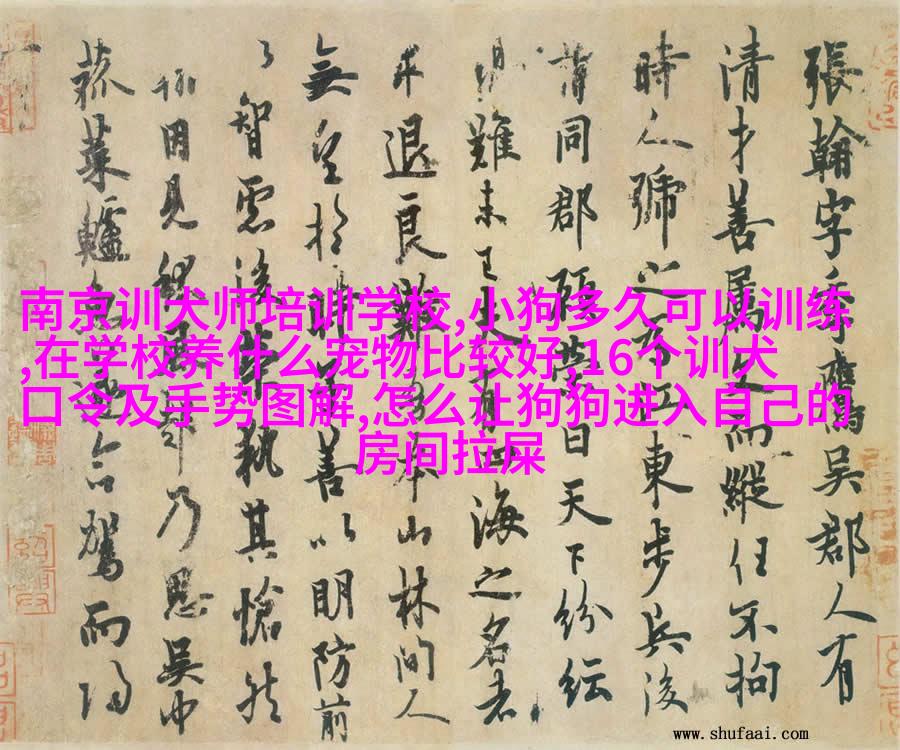 南京训犬师培训学校,小狗多久可以训练
,在学校养什么宠物比较好,16个训犬
口令及手势图解,怎么让狗狗进入自己的
房间拉屎
張翰字季鷹吳郡人有
清才善属文而縱任不拘
時人號之為江東步兵後
謂同郡顧榮曰天下紛紜
禍難未已夫有四海之名者
求退良難吾本山林間人
無望於時子善以明防前
以智慮後榮執其愴然
翰因見秋風起乃思吳中
菰菜鱸魚遂命駕而歸
www.shufaai.com